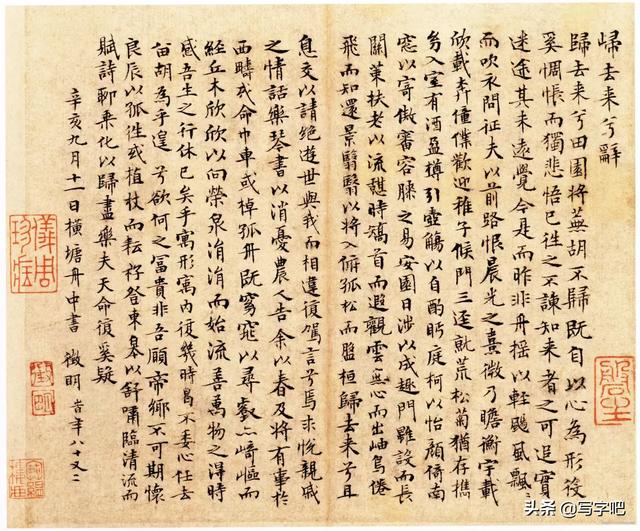 歸去来兮辭
歸去来兮田園将蕪胡不歸既自以心為形役
奚惆悵而獨悲悟已往之不諫知来者之可追實
迷途其未遠覺今是而昨非舟摇以輕颺風飄ゝ
而吹衣問征夫以前路恨晨光之熹微乃瞻衡宇載
欣載奔僮僕歡迎稚子候門三逕就荒松菊猶存携
幼入室有酒盈樽引壺觴以自酌眄庭柯以怡顔倚南
窓以寄傲審容膝之易安園日涉以成趣門雖設而長
關策扶老以流憩時矯首而遐觀雲無心而出岫鳥倦
飛而知還景翳翳以将入撫孤松而盤桓歸去来兮且
息交以請絶遊世與我而相違復駕言兮焉求悦親戚
之情話樂琴書以消憂農人告余以春及将有事於
西疇或命巾車或棹孤舟既窈窕以尋壑亦崎嶇而
經丘木欣欣以向榮泉涓涓而始流善萬物之得時
感吾生之行休已矣乎寓形寓内復幾時曷不委心任去
留胡為乎遑ゝ兮欲何之富貴非吾願帝鄉不可期懷
良辰以孤往或植杖而耘耔登東皋以舒嘯臨清流而
賦詩聊乘化以歸盡樂夫天命復奚疑
辛亥九月十一日横塘舟中書 徵明 時年八十又二
儀周珍藏
徵明
头条 @写字吧